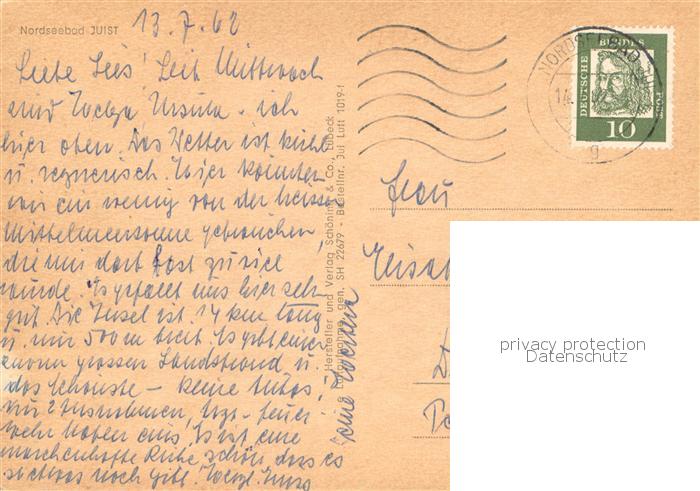 Nordseebad JUIST
13.7.62
Liebe Lies! Seit Mittwoch
sind Helga Ursula - ich
hier oben. Das Wetter ist kühl
u. regnerisch. Hier könnten
wir ein wenig von der heissen
Mittelmeersonne gebrauchen,
die uns dort fast zu viel
wurde. Es gefällt uns hier sehr
gut. Die Insel ist 17 km lang
u. nur 500 m breit. Es gibt einen
enorm grossen Sandstrand u.
das Schönste - keine Autos,
nur 2 Ausnahmen, Arzt - Feuer-
wehr haben eins. Es ist eine
märchenhafte Ruhe schön dass es
so etwas noch gibt. Herzl. Gruss
Deine
Hersteller und Verlag Schöning & Co., Lübeck
Luftaufnahme gen. SH 22679 - Bestellnr. Jui Luft 1019-1
NORDSEEBAD JUIST
14.
g
DEUTSCHE
BUNDES
POST
10
Frau
privacy protection
Datenschutz